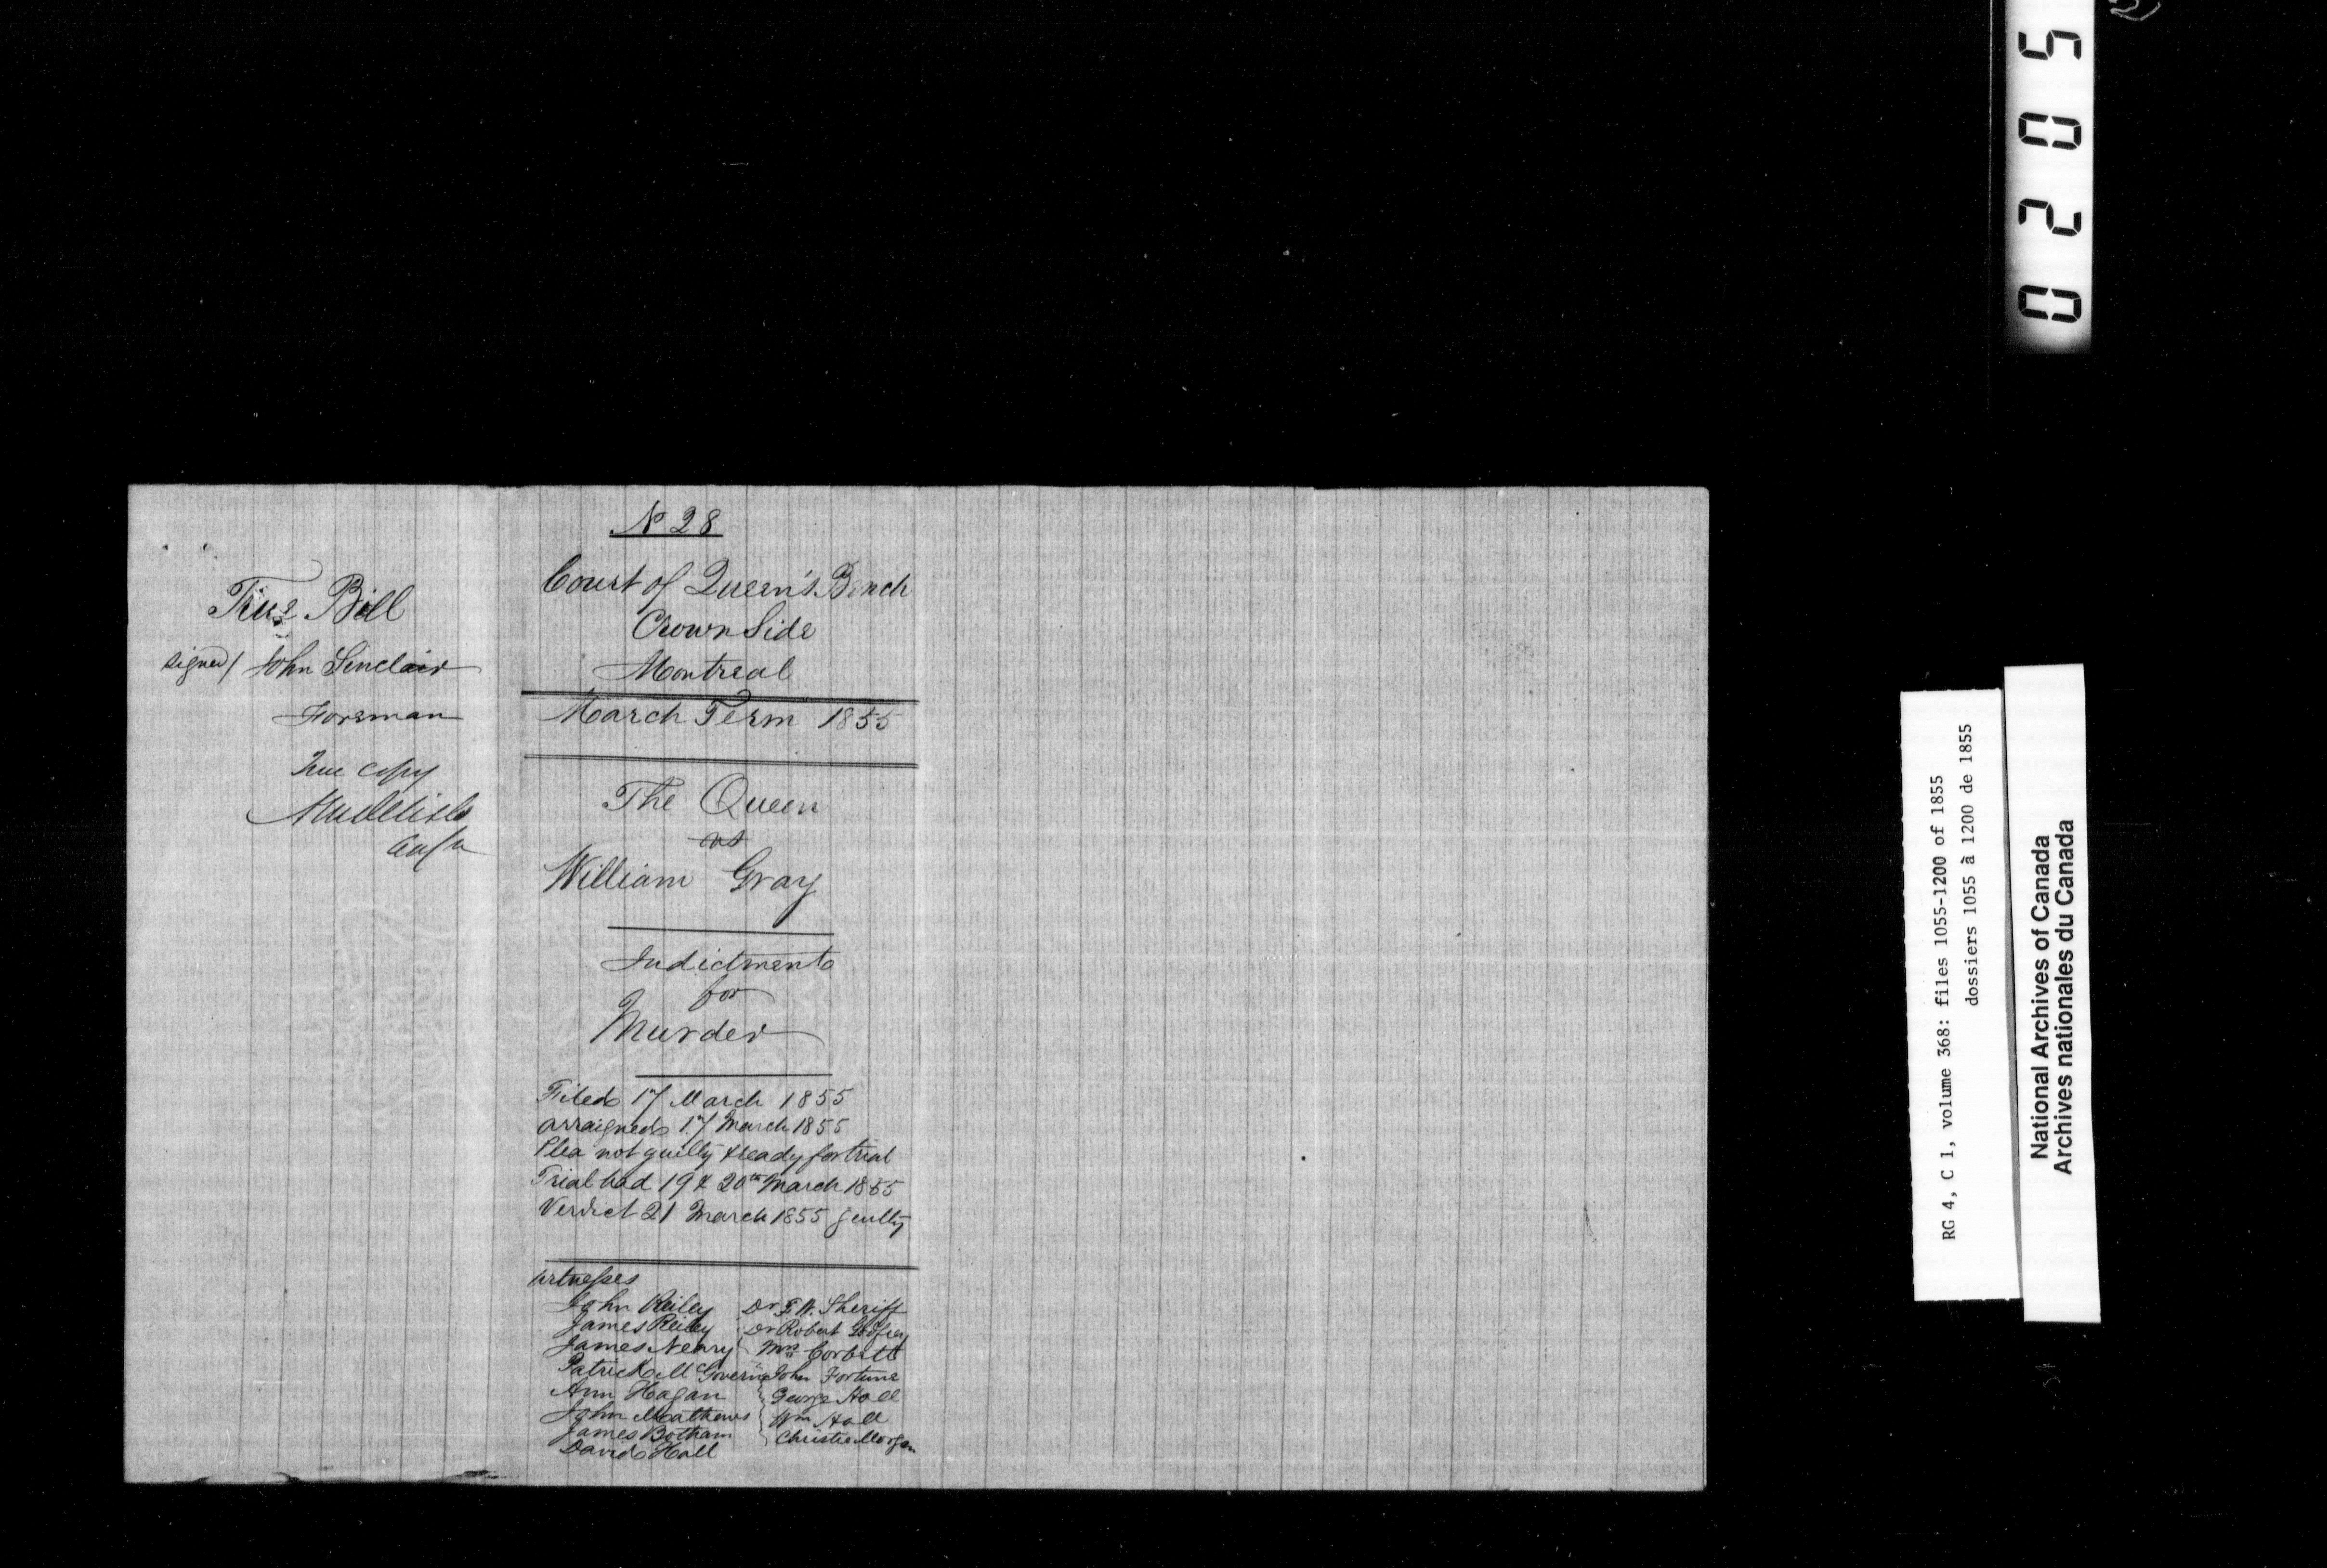 True Bill
signed/ John Sinclair
Foreman
True copy
No 28
Court of Queen's Bench
Crown Side
Montreal
March Term 1855
The Queen
vs
William Gray
Indictment
for
Murder
Filed 17 March 1855
arraigned 17 March 1855
Plea not guilty & ready for trial
Trial had 19 & 20th March 1855
Verdict 21 March 1855 guilty
Witnesses
John Reiley
James Reiley
James Neary
Patrick McGovern
Ann Hagan
John Mathews
James Botham
David Hall
Dr F. W. Sheriff
Dr Robert Godfrey
Mrs Corbett
John Fortune
George Hall
Wm Hall
Christie Morgan
0205
RG 4, C 1, volume 368: files 1055-1200 of 1855
dossiers 1055 à 1200 de 1855
National Archives of Canada
Archives nationales du Canada